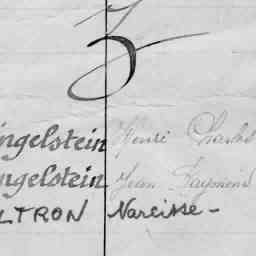 Z
ngelstein Henri Charles
ngelstein Jean Raymond
LTRON Narcisse -